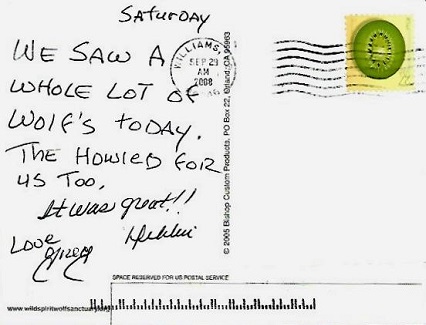 Saturday
WE SAW A
WHOLE LOT OF
WOLF'S TODAY.
THE HOWLED FOR
US TOO.
It was great!!
Love
WILLIAMS,
SEP 29
AM
2008
© 2005 Bishop Custom Products, PO Box 22, Orland, CA 95963
SPACE RESERVED FOR US POSTAL SERVICE
www.wildspiritwolfsanctuary.org